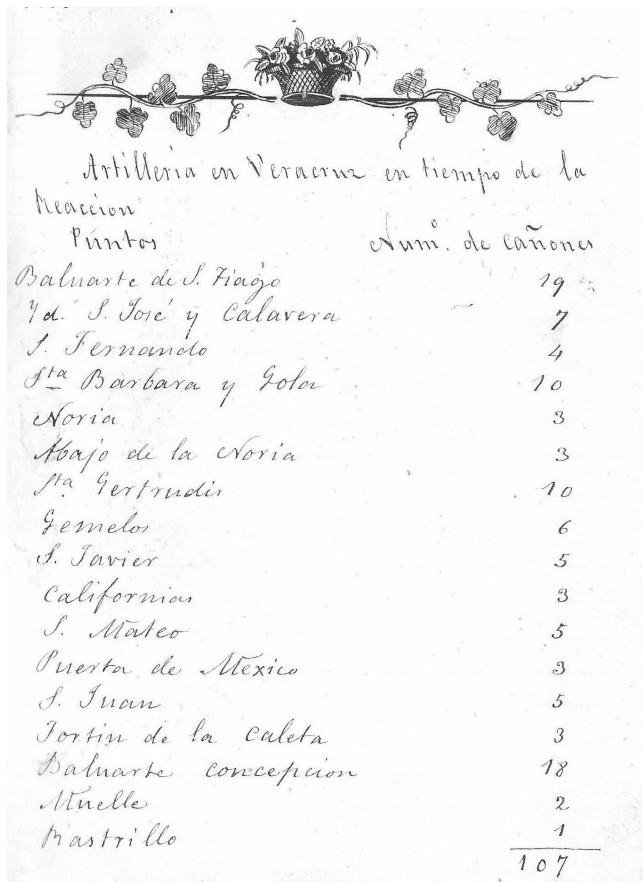 Artilleria en Veracruz en tiempo de la
Reaccion
Puntos Num.º de cañones
Baluarte de S. Tiago 19
Yd. S. José y Calavera 7
S. Fernando 4
Sta Barbara y Gola 10
Noria 3
Abajo de la Noria 3
Sta. Gertrudis 10
Gemelos 6
S. Javier 5
Californias 3
S. Mateo 5
Puerta de Mexico 3
S. Juan 5
Fortin de la Caleta 3
Baluarte Concepcion 18
Muelle 2
Rastrillo 1
107